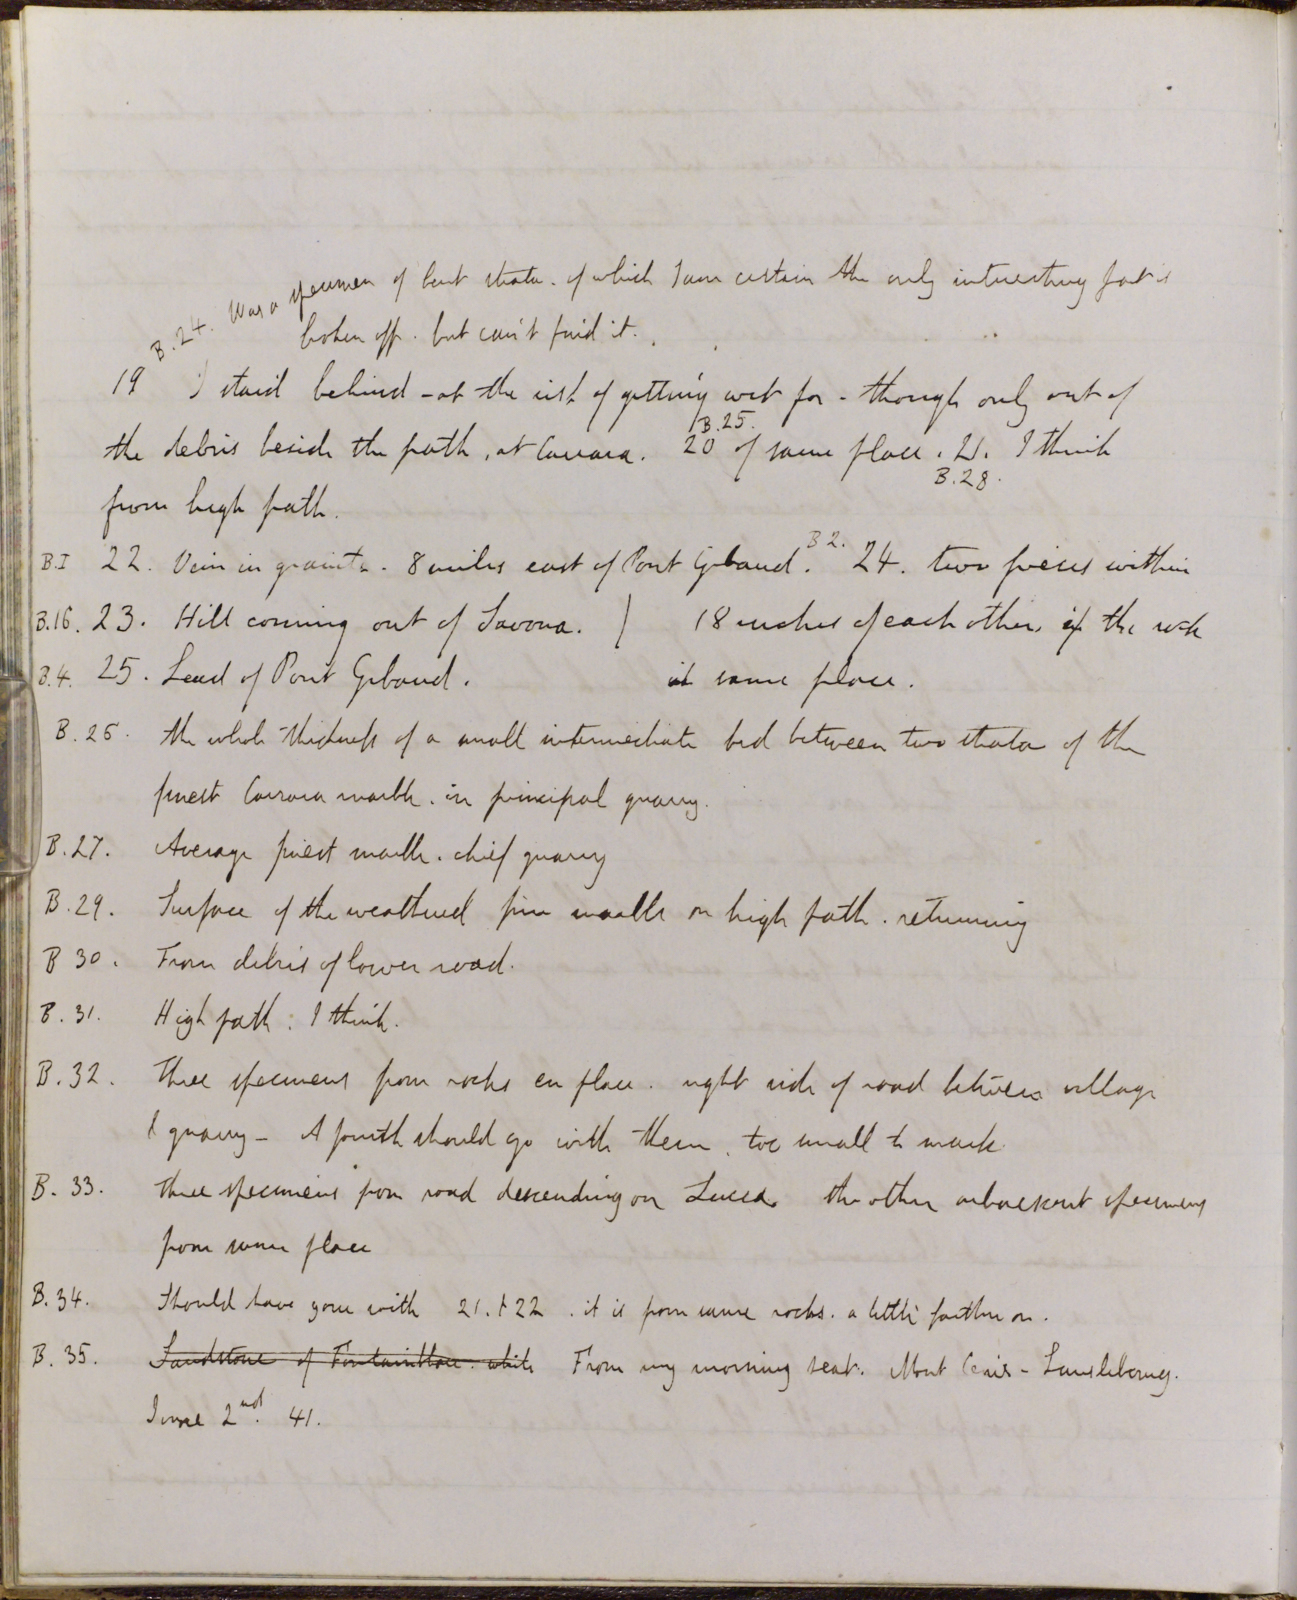 B.24. Was a specimen of bent strata. of which I am certain the only interesting part is
broken off. but can't find it.
19 I staid behind - at the risk of getting wet for - though only out of
the debris beside the path, at Carrara. 20 B.25. of same place. 21. I think
B.28.
from high path.
B.I 22. Vein in granite. 8 miles east of Pont Gibaud. B 2. 24. two pieces within
B.16. 23. Hill coming out of Savona. | 18 inches of each other, if the rock
B.4. 25. Lead of Pont Gibaud. in same place.
B.26. the whole thickness of a small intermediate bed between two strata of the
finest Carrara marble. in principal quarry.
B.27. Average finest marble. chief quarry
B.29. Surface of the weathered fine marble on high path. returning
B 30. From debris of lower road.
B.31. High path. I think.
B.32. Three specimens from rocks en place. right side of road between village
& quarry - A fourth should go with them, too small to mark
B.33. three specimens from road descending on Lucca. the other arborescent specimens
from same place
B.34. Should have gone with 21. & 22. it is from same rocks. a little farther on.
B.35. Sandstone of Fontainbleau. white From my morning seat. Mont Cenis - Lanslebourg.
June 2nd. 41.